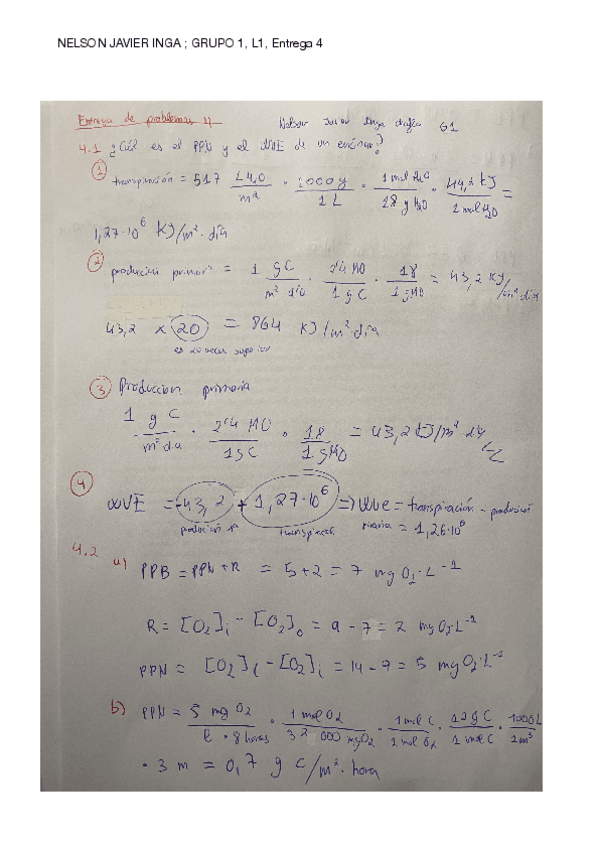 NELSON JAVIER INGA ; GRUPO 1, L1, Entrega 4
Entrega de problemas 4 Nelson Javier Inga G1
4.1 ¿Cuál es el PPN y el WUE de un encinar?
① transpiración = 517 L H2O / m² · 1000 g / 1 L · 1 mol H2O / 18 g H2O · 44,2 kJ / 1 mol H2O =
1,27·10⁶ KJ/m²·día
② produccion primaria = 1 g C / m² día · 2,4 MO / 1 g C · 18 / 1 gMO = 43,2 KJ/m² dia
43,2 x 20 = 864 KJ/m² dia
es 20 veces superior
③ Produccion primaria
1 g C / m² dia · 2,4 MO / 1 g C · 18 / 1 gMO = 43,2 KJ/m² dia
④ WUE = -43,2 + 1,27·10⁶ => Wue = transpiración - producción
producción transpiración primaria = 1,26·10⁶
4.2 a) PPB = PPN + R = 5 + 2 = 7 mg O2·L⁻¹
R = [O2]i - [O2]o = 9 - 7 = 2 mg O2·L⁻¹
PPN = [O2]l - [O2]i = 14 - 9 = 5 mg O2·L⁻¹
b) PPN = 5 mg O2 / l · 8 horas · 1 mol O2 / 32 000 mg O2 · 1 mol C / 1 mol O2 · 12 g C / 1 mol C · 1000 L / 1 m³
· 3 m = 0,7 g C/m²·hora